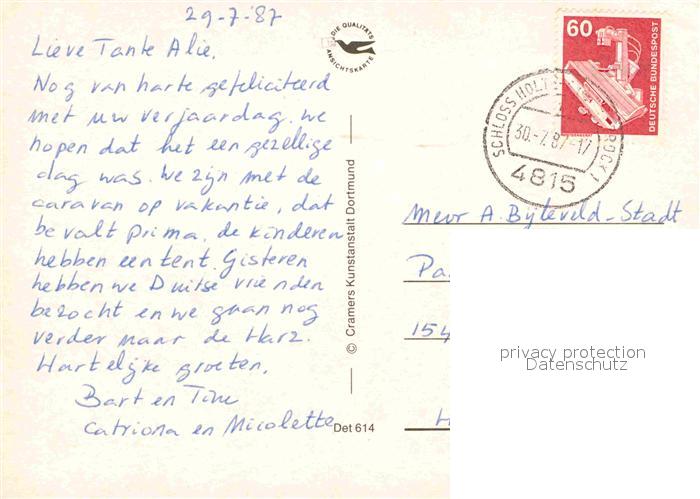 29-7-'87
Lieve Tante Alie,
Nog van harte gefeliciteerd
met uw verjaardag. we
hopen dat het een gezellige
dag was. We zijn met de
caravan op vakantie, dat
bevalt prima. de kinderen
hebben een tent. Gisteren
hebben we Duitse vrienden
bezocht en we gaan nog
verder naar de Harz.
Hartelijke groeten,
Bart en Tine
Catriona en Nicolette
DIE QUALITÄTS
ANSICHTSKARTE
© Cramers Kunstanstalt Dortmund
Det 614
60
DEUTSCHE BUNDESPOST
SCHLOSS HOLT
30.-7.87-17
4815
Mevr A. Bijteveld-Stadt
Pa
154
privacy protection
Datenschutz